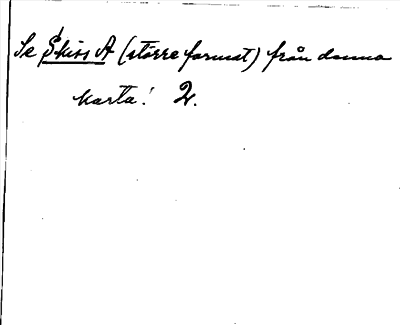 Se Skiss A (större format) från denna
karta! 2.